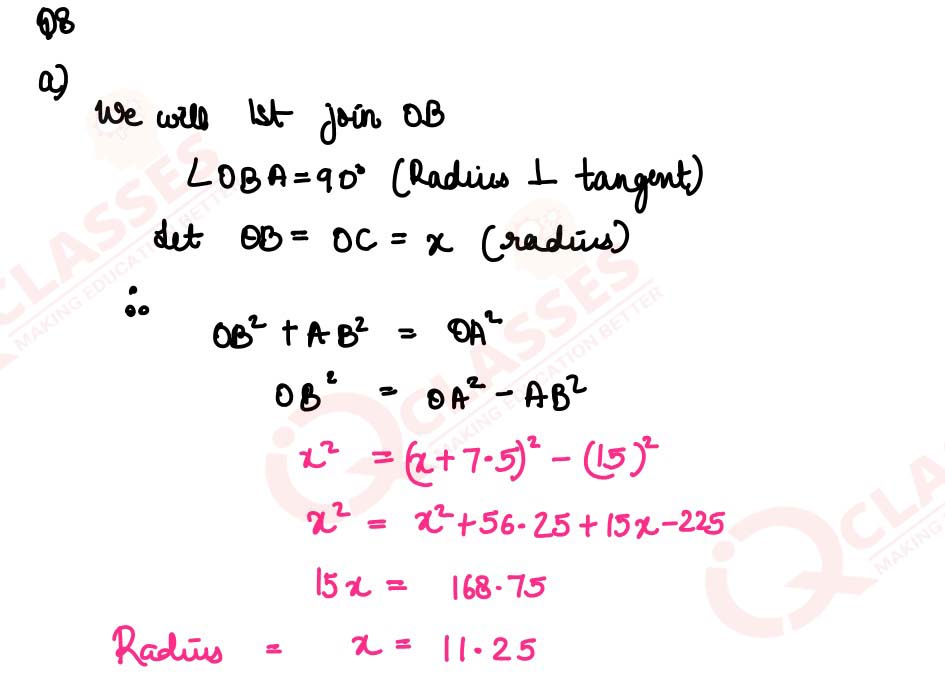 Q8
a)
We will 1st join OB
∠OBA = 90° (Radius ⊥ tangent)
Let OB = OC = x (radius)
∴
OB² + AB² = OA²
OB² = OA² - AB²
x² = (x + 7.5)² - (15)²
x² = x² + 56.25 + 15x - 225
15x = 168.75
Radius = x = 11.25
IQ CLASSES
MAKING EDUCATION BETTER